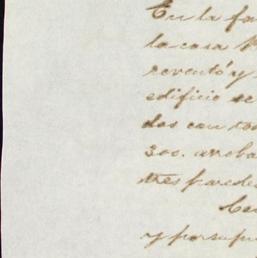 En la fa
la casa
reventó y
edificio se
dos con to
300. arroba
tres parede
y por supu